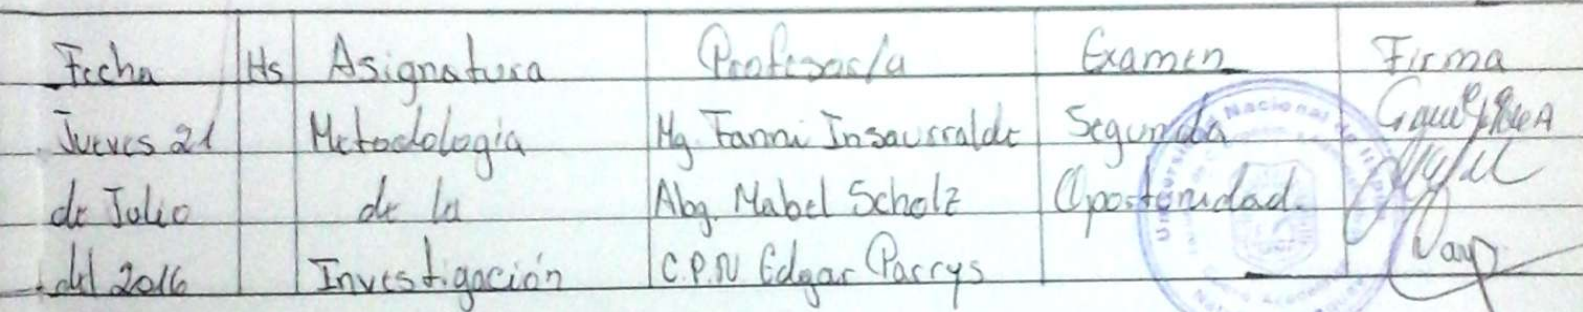 Fecha Hs Asignatura Profesor/a Examen Firma
Jueves 21 Metodología Mg. Fanni Insaurralde Segunda
de Julio de la Abg. Mabel Scholz Oportunidad.
del 2016 Investigación C.P.N Edgar Parrys
Nacional de